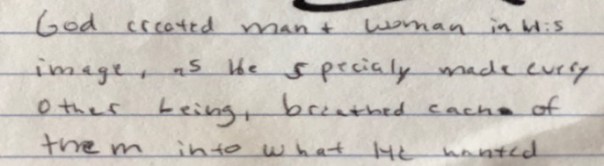 God created man + woman in His
image, as He specialy made every
other being, breathed each of
them into what He wanted